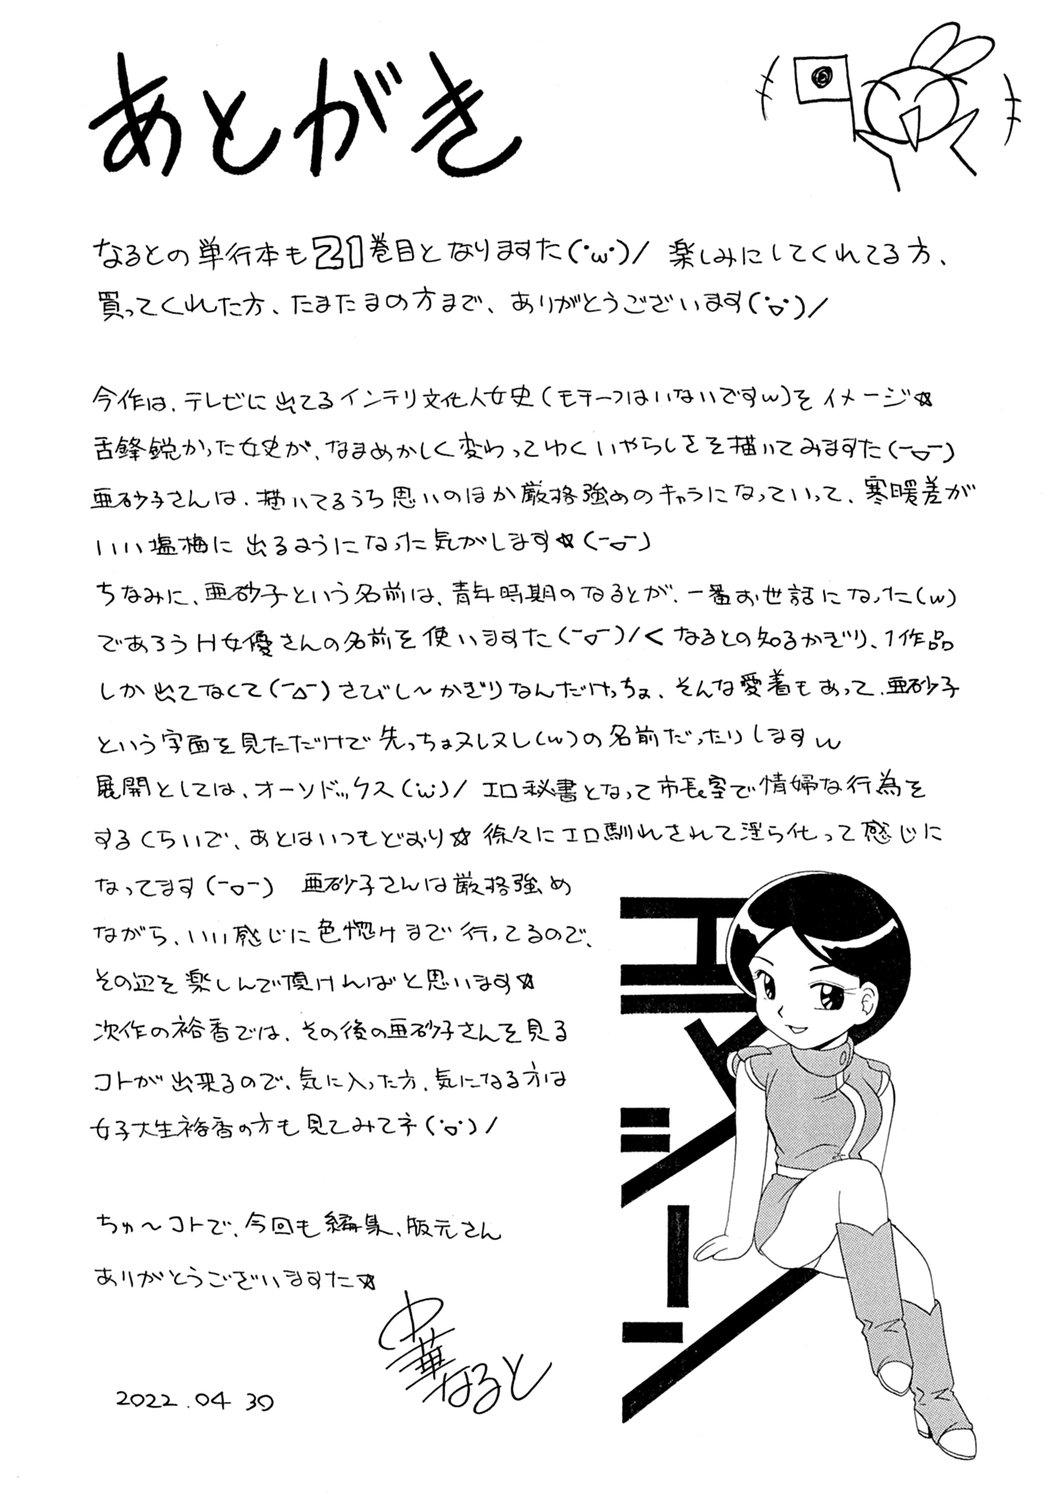 あとがき
なるとの単行本も21巻目となりますた(･ω･)/ 楽しみにしてくれてる方、
買ってくれた方、たまたまの方まで、ありがとうございます(･▽･)/
今作は、テレビに出てるインテリ文化人女史(モチーフはいないですw)をイメージ☆
舌鋒鋭かった女史が、なまめかしく変わってゆくいやらしさを描いてみますた(ー▽ー)
亜砂子さんは、描いてるうち思いのほか厳格強めのキャラになっていって、寒暖差が
いい塩梅に出るようになった気がします☆(ー▽ー)
ちなみに、亜砂子という名前は、青年時期のなるとが、一番お世話になった(w)
であろうH女優さんの名前を使いますた(ー▽ー)/くなるとの知るかぎり、1作品
しか出てなくて(ー△ー)さびし～かぎりなんだけっちょ、そんな愛着もあって、亜砂子
という字面を見ただけで先っちょヌレヌレ(w)の名前だったりしますw
展開としては、オーソドックス(･ω･)/ エロ秘書となって市長室で情婦な行為を
するくらいで、あとはいつもどおり☆徐々にエロ馴れされて淫ら化って感じに
なってます(ー▽ー) 亜砂子さんは厳格強め
ながら、いい感じに色惚けまで行ってるので、
その辺を楽しんで頂ければと思います☆
次作の裕香では、その後の亜砂子さんを見る
コトが出来るので、気に入った方、気になる方は
女子大生裕香の方も見てみてネ(･▽･)/
ちゅ～コトで、今回も編集、版元さん
ありがとうございますた☆
中華なると
2022.04 30
エマジーン